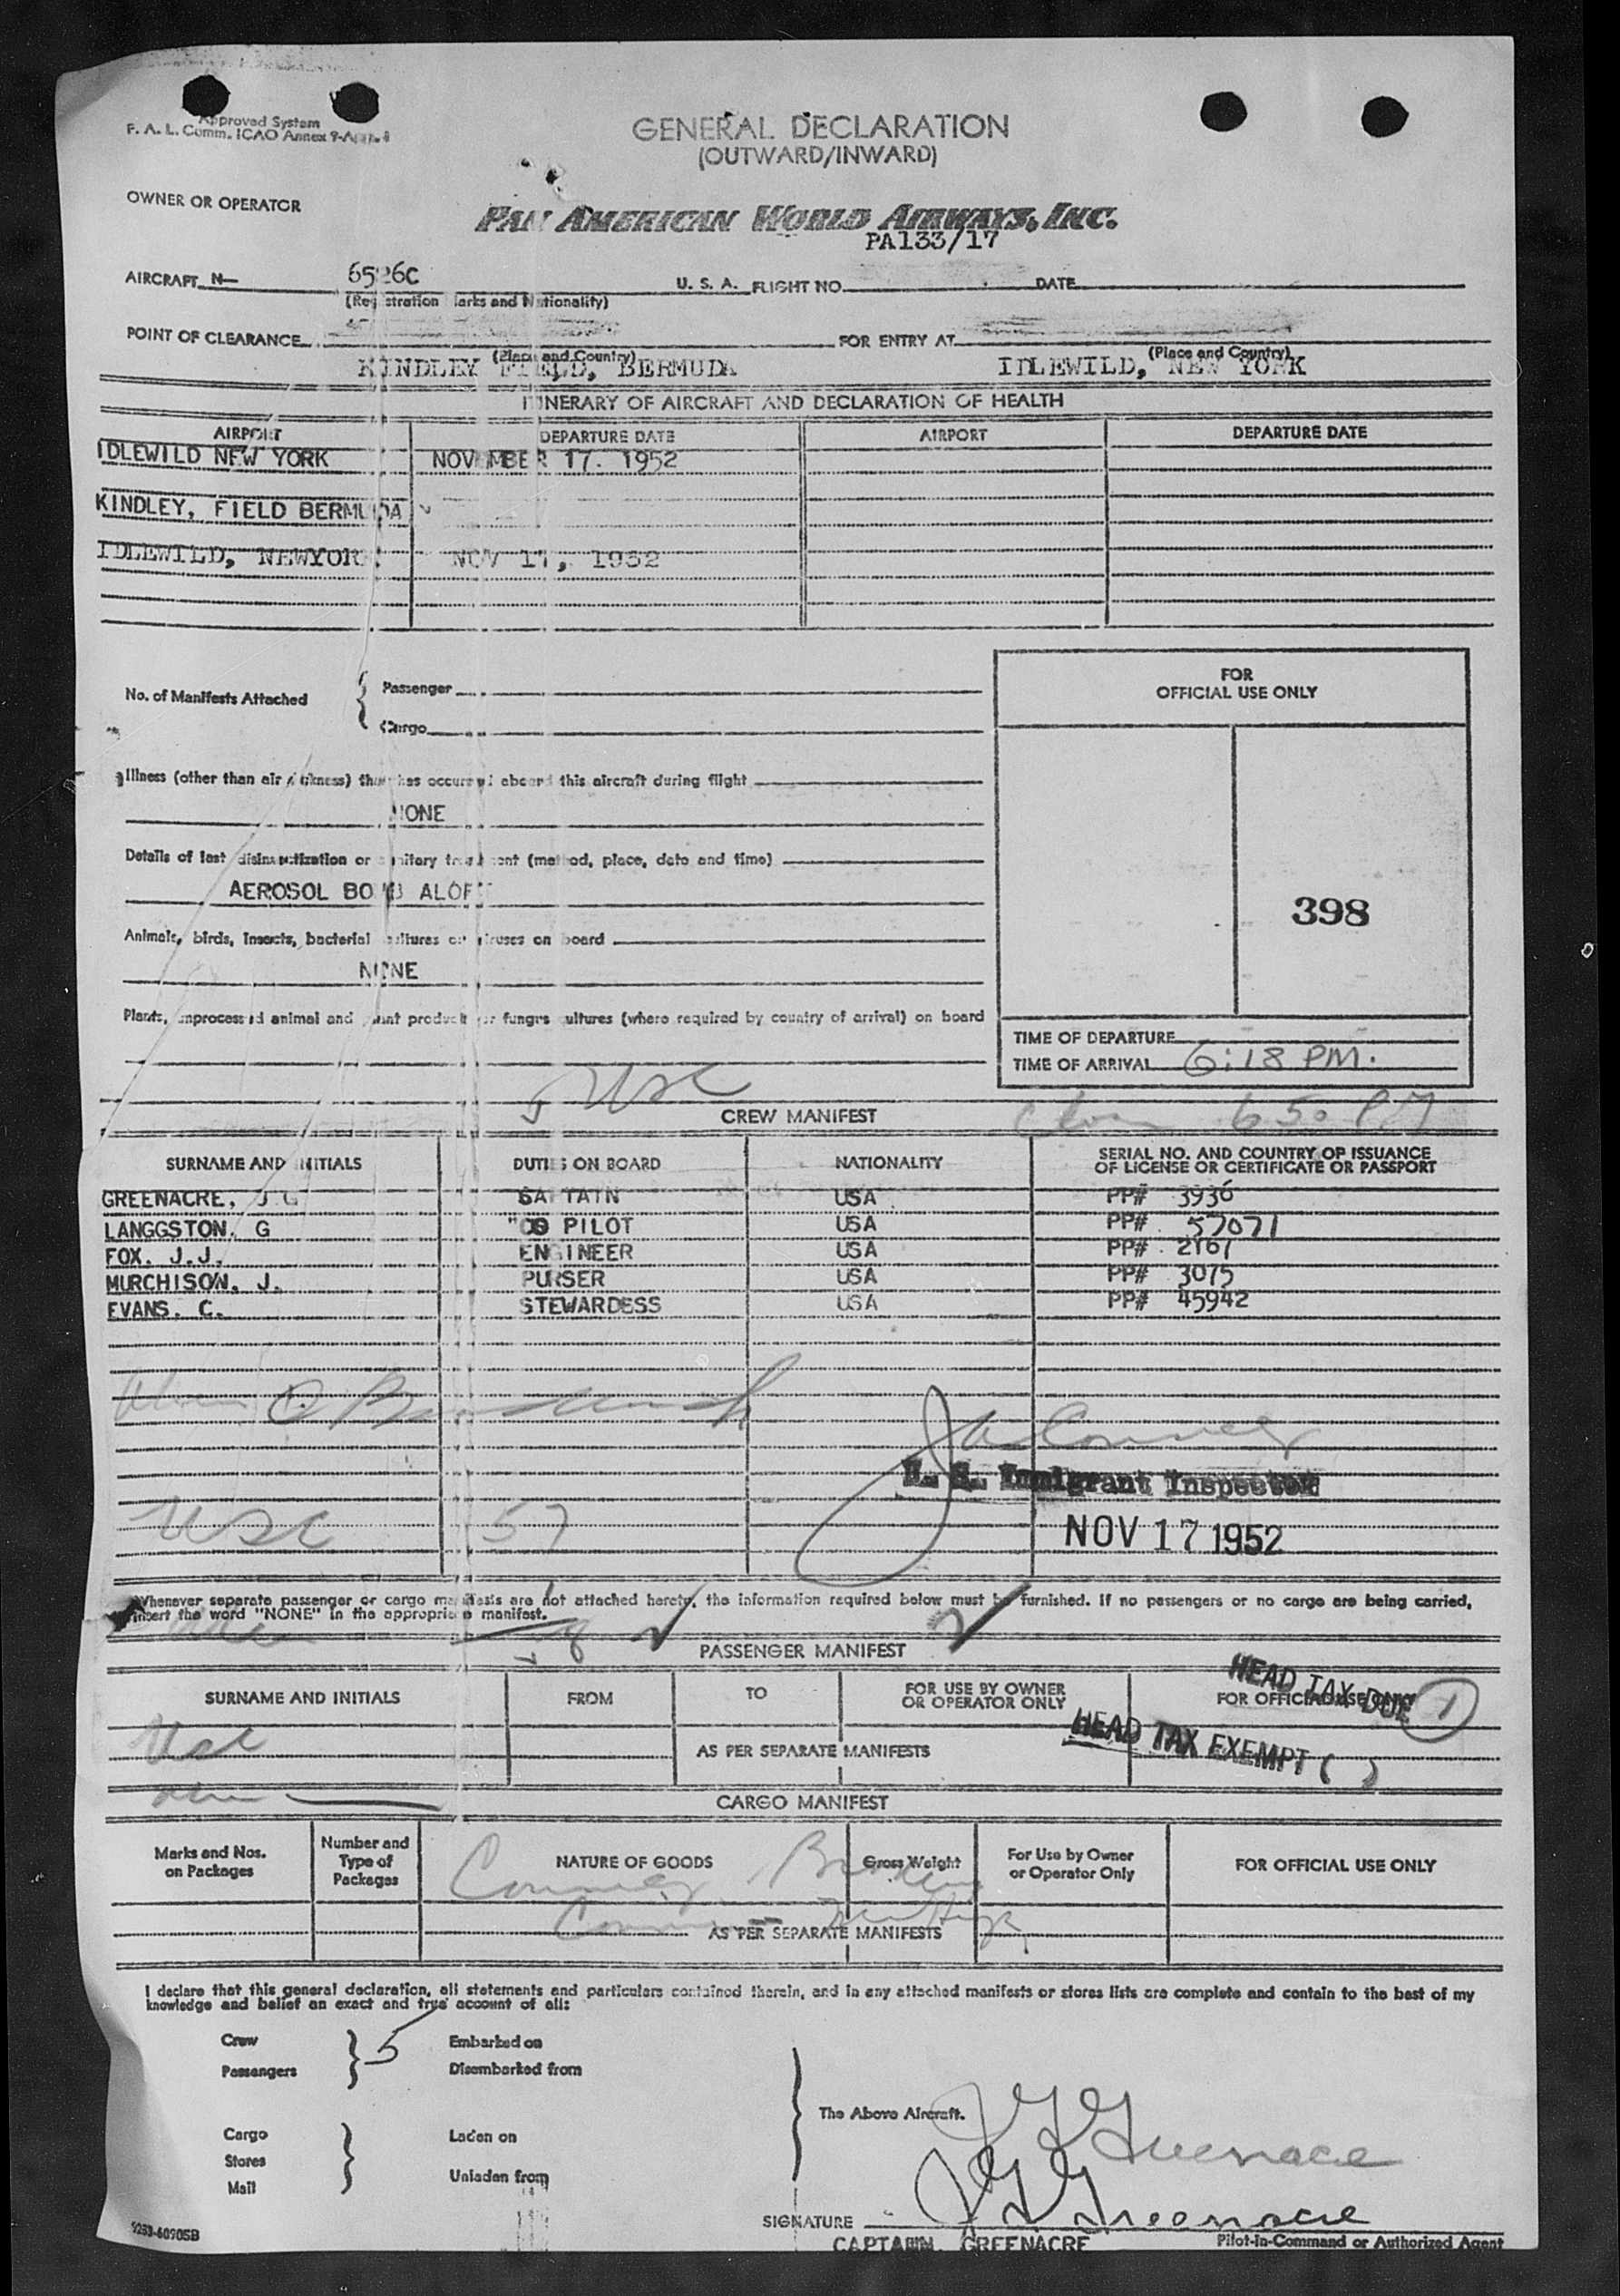 Approved System
F. A. L. Comm. ICAO Annex 9-App. 1
GENERAL DECLARATION
(OUTWARD/INWARD)
OWNER OR OPERATOR
PAN AMERICAN WORLD AIRWAYS, INC.
PA133/17
AIRCRAFT N- 6526C U. S. A. FLIGHT NO. DATE
(Registration Marks and Nationality)
POINT OF CLEARANCE FOR ENTRY AT
(Place and Country) (Place and Country)
KINDLEY FIELD, BERMUDA IDLEWILD, NEW YORK
ITINERARY OF AIRCRAFT AND DECLARATION OF HEALTH
AIRPORT DEPARTURE DATE AIRPORT DEPARTURE DATE
IDLEWILD NEW YORK NOVEMBER 17. 1952
KINDLEY, FIELD BERMUDA
IDLEWILD, NEWYORK. NOV 17, 1952
No. of Manifests Attached
Passenger
Cargo
FOR
OFFICIAL USE ONLY
Illness (other than air sickness) that has occurred aboard this aircraft during flight
NONE
Details of last disinsectization or sanitary treatment (method, place, date and time)
AEROSOL BOMB ALOFT
398
Animals, birds, insects, bacterial cultures or viruses on board
NONE
Plants, unprocessed animal and plant products or fungus cultures (where required by country of arrival) on board
TIME OF DEPARTURE
TIME OF ARRIVAL 6:18 PM.
5 USC
CREW MANIFEST
650 PM
SURNAME AND INITIALS DUTIES ON BOARD NATIONALITY SERIAL NO. AND COUNTRY OF ISSUANCE
OF LICENSE OR CERTIFICATE OR PASSPORT
GREENACRE, J G CAPTAIN USA PP# 3936
LANGGSTON, G CO PILOT USA PP# 57071
FOX. J.J. ENGINEER USA PP# 2167
MURCHISON, J. PURSER USA PP# 3075
EVANS. C. STEWARDESS USA PP# 45942
U. S. Immigrant Inspector
USC 57
NOV 17 1952
Whenever separate passenger or cargo manifests are not attached hereto, the information required below must be furnished. If no passengers or no cargo are being carried,
insert the word "NONE" in the appropriate manifest.
PASSENGER MANIFEST
HEAD TAX DUE (1)
SURNAME AND INITIALS FROM TO FOR USE BY OWNER
OR OPERATOR ONLY FOR OFFICIAL USE ONLY
HEAD TAX EXEMPT ( )
USC
AS PER SEPARATE MANIFESTS
CARGO MANIFEST
Marks and Nos.
on Packages
Number and
Type of
Packages
NATURE OF GOODS Gross Weight
For Use by Owner
or Operator Only
FOR OFFICIAL USE ONLY
AS PER SEPARATE MANIFESTS
I declare that this general declaration, all statements and particulars contained therein, and in any attached manifests or stores lists are complete and contain to the best of my
knowledge and belief an exact and true account of all:
Crew 5 Embarked on
Passengers Disembarked from
The Above Aircraft.
J G Greenacre
Cargo Laden on
Stores
Mail Unladen from
J G Greenacre
SIGNATURE
CAPTAIN. GREENACRE Pilot-in-Command or Authorized Agent
9283-60905B